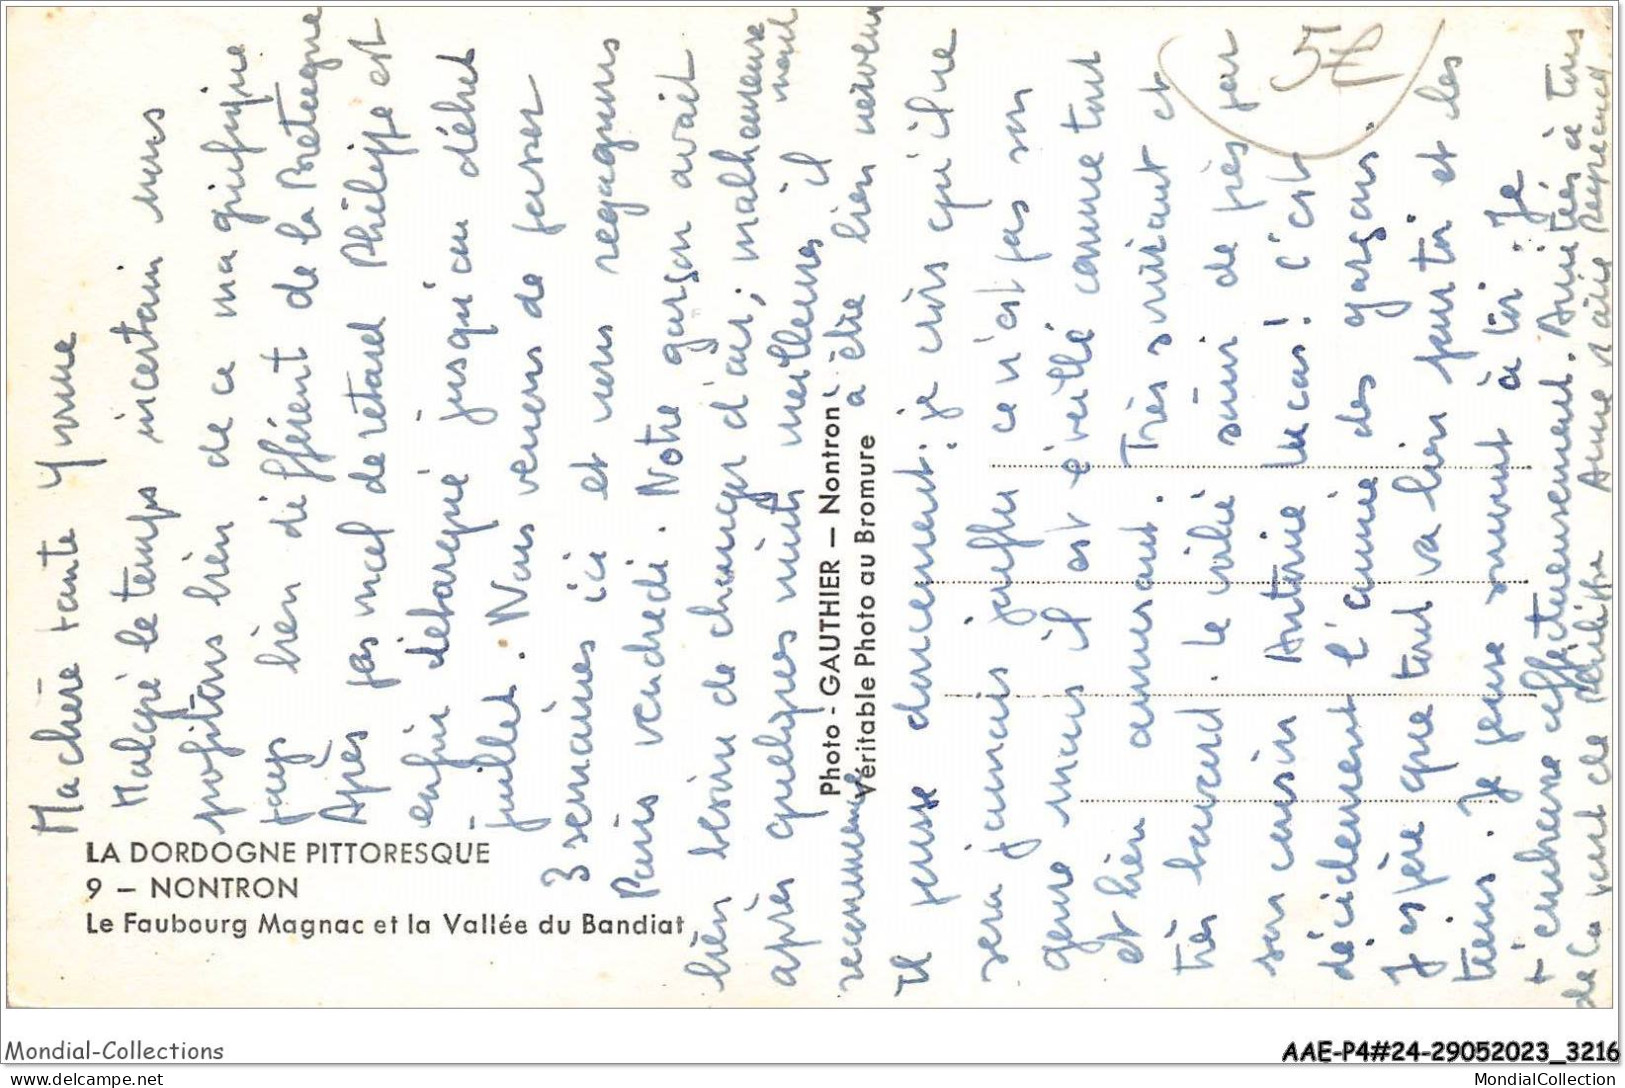 LA DORDOGNE PITTORESQUE
9 — NONTRON
Le Faubourg Magnac et la Vallée du Bandiat
Photo - GAUTHIER — Nontron
Véritable Photo au Bromure
5€
Ma chère tante Yvonne
Malgré le temps incertain nous
profitons bien de ce magnifique
pays bien différent de la Bretagne
Après pas mal de retard Philippe est
enfin débarqué jusqu'au début
juillet. Nous venons de passer
3 semaines ici et nous regagnons
Paris vendredi. Notre garçon avait
bien besoin de changer d'air ; malheureuse
après quelques nuits meilleures il
recommence à être bien nerveux
Il pousse doucement : je crois qu'il ne
sera jamais joufflu ce n'est pas son
genre mais il est éveillé comme tout
et bien amusant. Très suivant et
très bavard. Le
son cousin Antoine Lucas ! c'est
décidement l'année des garçons.
J'espère que tout va bien pour toi et les
tiens. Je pense souvent à toi. Je
t'embrasse affectueusement. Amitiés à tous
de la part de Philippe Anne
Mondial-Collections
AAE-P4#24-29052023_3216
www.delcampe.net
MondialCollection